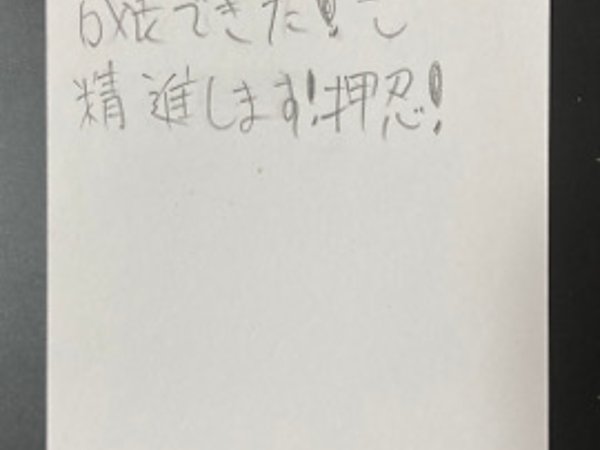 できた!と
精進します!押忍!